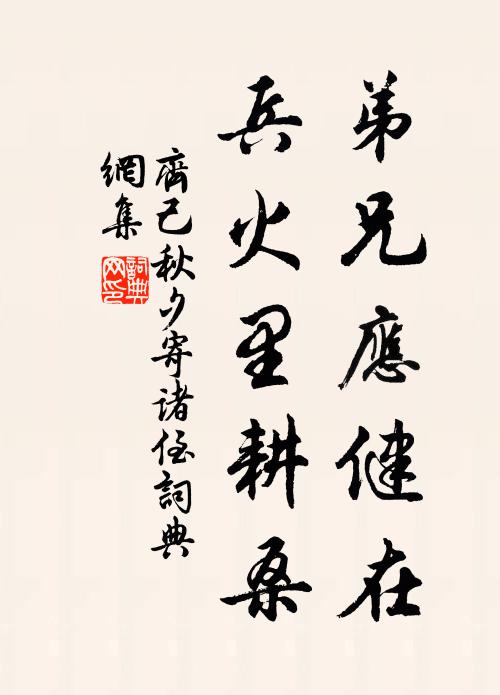 弟兄應健在
兵火里耕桑
齊己秋夕寄諸侄詞典
網集
詞典
网印